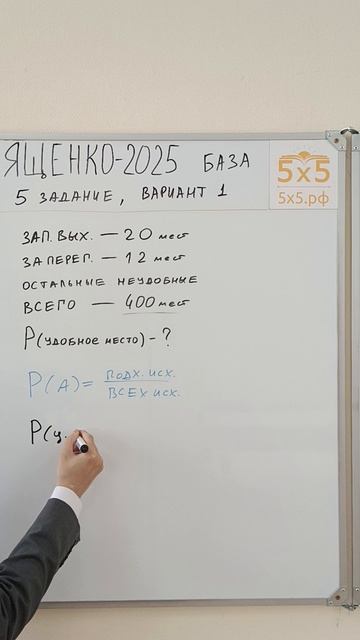 ЯЩЕНКО-2025 БАЗА
5 ЗАДАНИЕ, ВАРИАНТ 1
5х5
5х5.рф
ЗАП. ВЫХ. — 20 мест
ЗА ПЕРЕГ. — 12 мест
ОСТАЛЬНЫЕ НЕУДОБНЫЕ
ВСЕГО — 400 мест
P(УДОБНОЕ МЕСТО) - ?
P(A) = ПОДХ. ИСХ. / ВСЕХ ИСХ.
P(у.